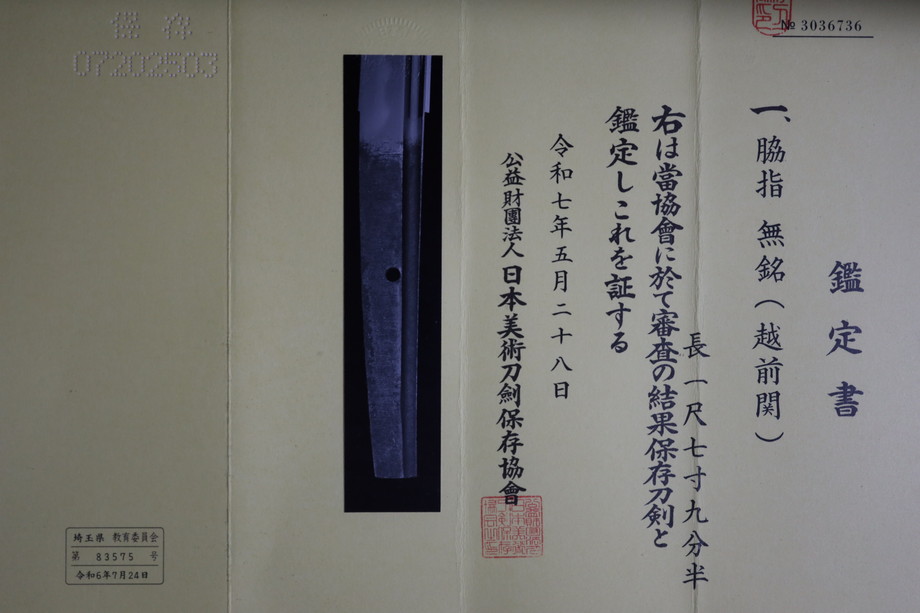 № 3036736
鑑定書
一、脇指 無銘(越前関)
長一尺七寸九分半
右は當協會に於て審査の結果保存刀剣と
鑑定しこれを証する
令和七年五月二十八日
公益財團法人 日本美術刀劍保存協會
保存
07202503
埼玉県 教育委員会
第 83575 号
令和6年7月24日